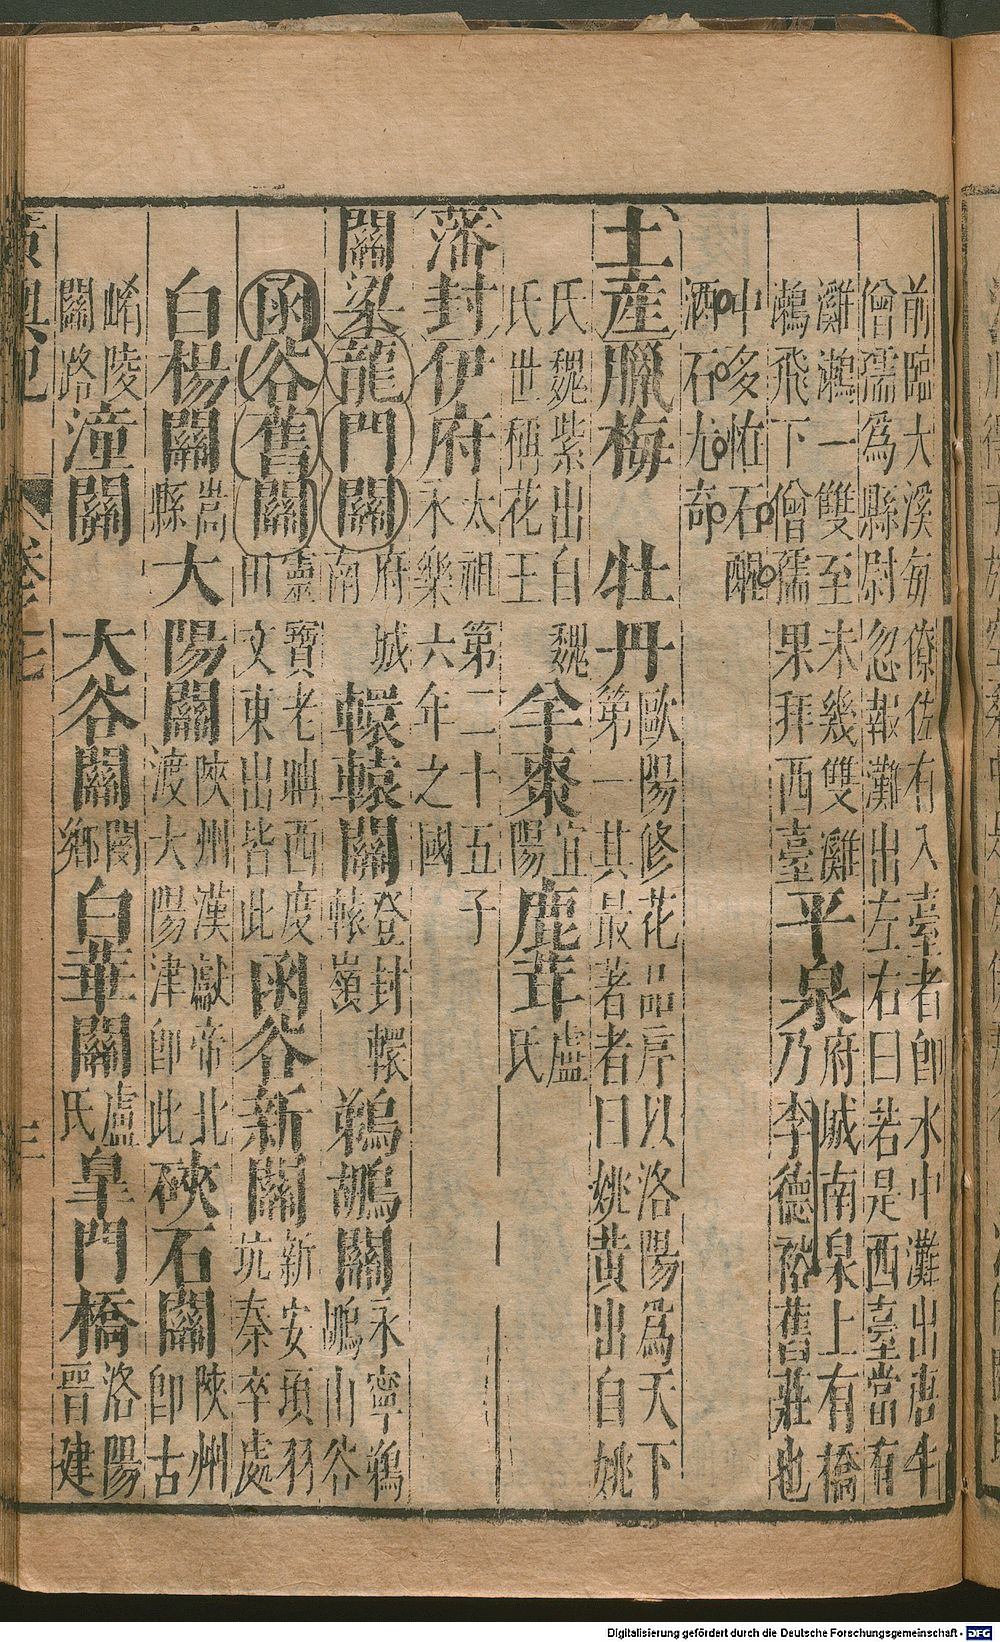 前臨大溪每僚佐有入臺者卽水中灘出唐牛
僧孺爲縣尉忽報灘出左右曰若是西臺當有
灘鶒一雙至未幾雙灘
鶒飛下僧孺果拜西臺
平泉
府城南泉上有橋
乃李德裕舊莊也
中多怪石醒
酒石尤奇
土産臘梅 牡丹
歐陽修花品序以洛陽爲天下
第一其最著者曰姚黄出自姚
氏魏紫出自魏
氏世稱花王
羊棗
宜
陽
鹿茸
盧
氏
藩封伊府
太祖第二十五子
永樂六年之國
關梁龍門關
府城
南
轘轅關
登封轘
轅嶺
鵜鶘關
永寧鵜
鶘山谷
函谷舊關
靈寶老聃西度
田文東出皆此
函谷新關
新安項羽
坑秦卒處
白楊關
嵩
縣
大陽關
陝州漢獻帝北
渡大陽津卽此
硤石關
陝州
卽古
崤陵
關路
潼關 大谷關
閿
鄉
白華關
盧
氏
皇門橋
洛陽
晉建
廣輿記 卷之七 三
Digitalisierung gefördert durch die Deutsche Forschungsgemeinschaft - DFG